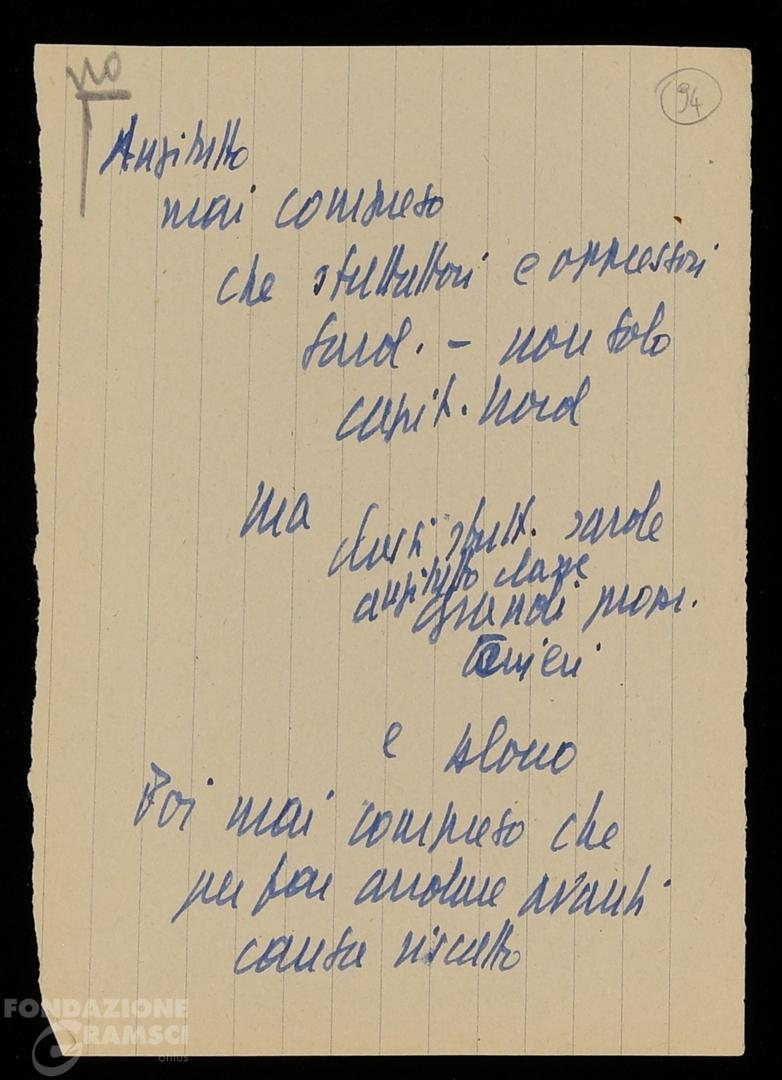 no
94
Anzitutto
mai compreso
che sfruttatori e oppressori
Sard. - non solo
capit. Nord
Ma
classi sfrutt. sarde
anzitutto classe
grandi propr.
terrieri
e blocco
Poi mai compreso che
per far andare avanti
causa riscatto
FONDAZIONE
GRAMSCI
onlus